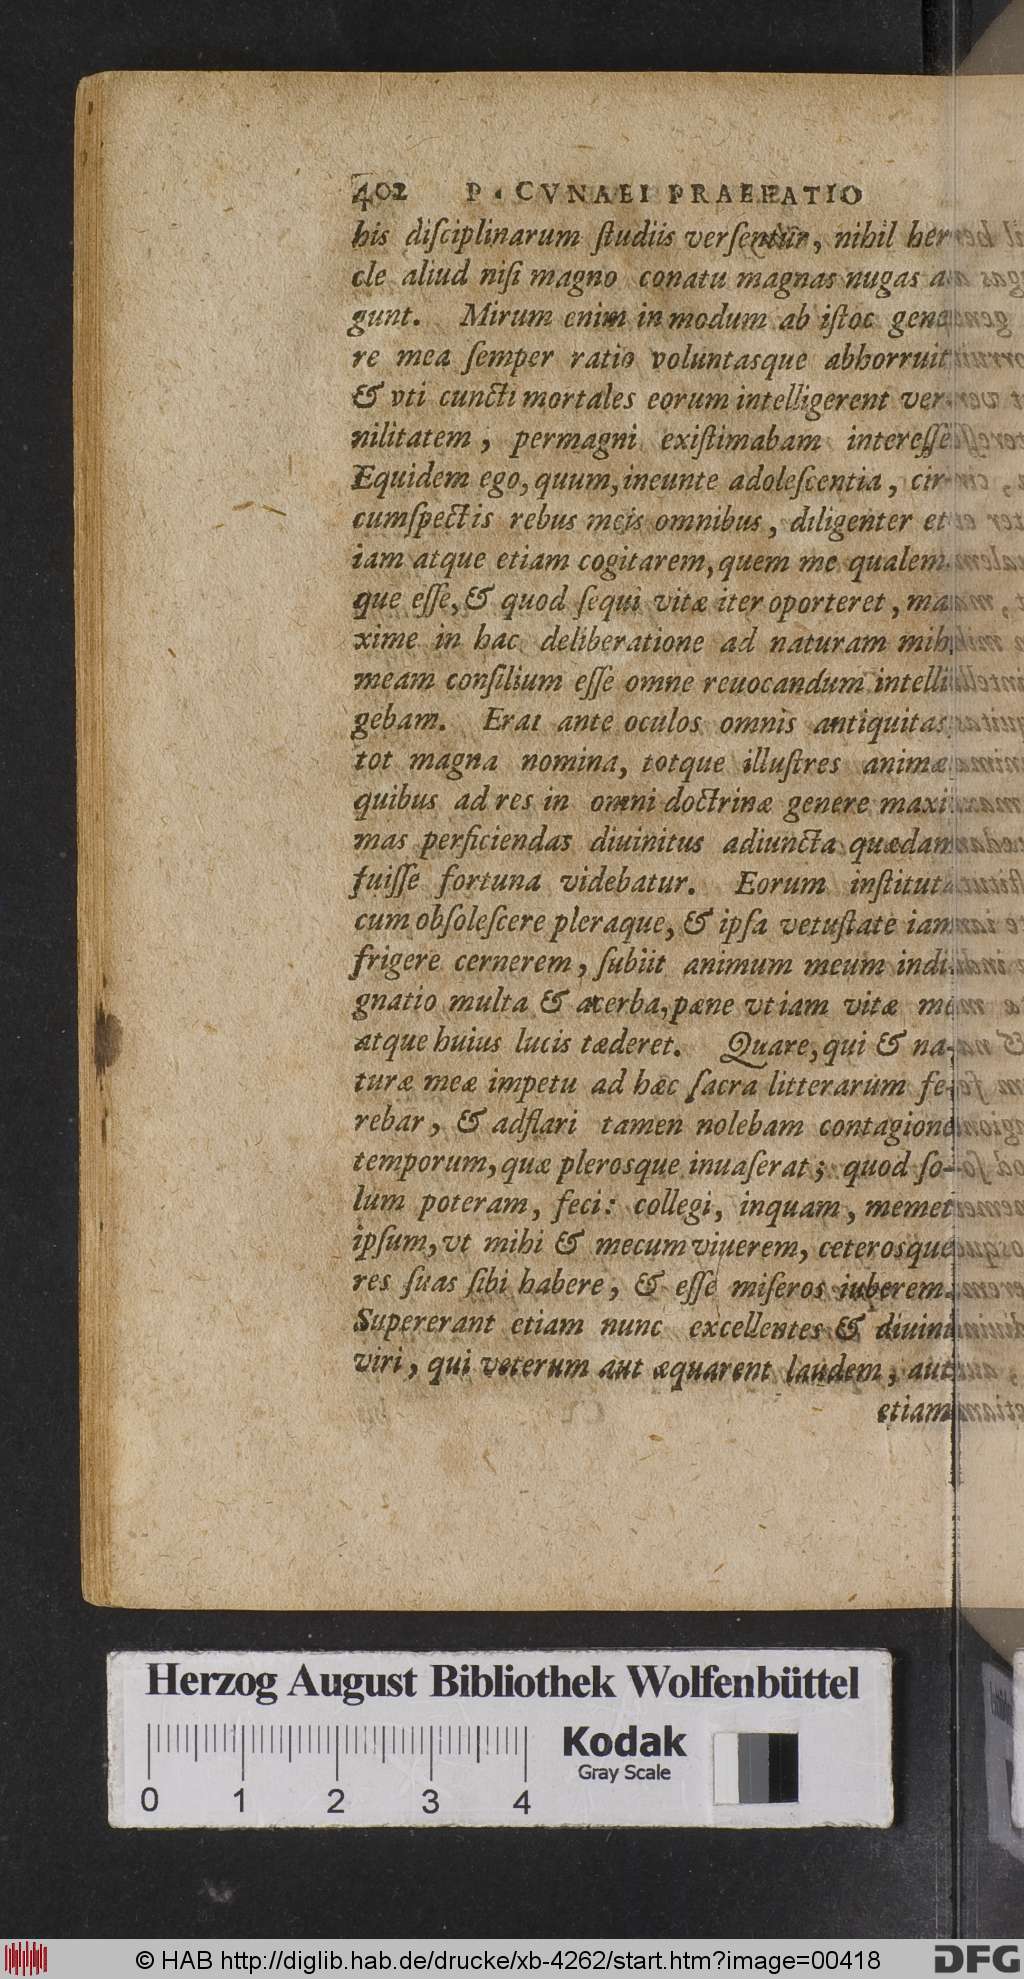 402 P. CVNAEI PRAEFATIO
his diſciplinarum ſtudiis verſentur, nihil her
cle aliud niſi magno conatu magnas nugas a
gunt. Mirum enim in modum ab iſtoc gene
re mea ſemper ratio voluntasque abhorruit
& vti cuncti mortales eorum intelligerent ver
nilitatem, permagni exiſtimabam intereſſe
Equidem ego, quum, ineunte adoleſcentia, cir-
cumſpectis rebus meis omnibus, diligenter et
iam atque etiam cogitarem, quem me qualem-
que eſſe, & quod ſequi vitæ iter oporteret, ma
xime in hac deliberatione ad naturam mihi
meam conſilium eſſe omne reuocandum intelli
gebam. Erat ante oculos omnis antiquitas
tot magna nomina, totque illuſtres animæ
quibus ad res in omni doctrinæ genere maxi
mas perficiendas diuinitus adiuncta quædam
fuiſſe fortuna videbatur. Eorum inſtituta
cum obſoleſcere pleraque, & ipſa vetuſtate iam
frigere cernerem, ſubiit animum meum indi
gnatio multa & acerba, pæne vt iam vitæ me
atque huius lucis tæderet. Quare, qui & na-
turæ meæ impetu ad hæc ſacra litterarum fe-
rebar, & adflari tamen nolebam contagione
temporum, quæ plerosque inuaſerat; quod ſo-
lum poteram, feci: collegi, inquam, memet
ipſum, vt mihi & mecum viuerem, ceterosque
res ſuas ſibi habere, & eſſe miſeros iuberem.
Supererant etiam nunc excellentes & diuini
viri, qui veterum aut æquarent laudem, aut
etiam
Herzog August Bibliothek Wolfenbüttel
Kodak
Gray Scale
0 1 2 3 4
© HAB http://diglib.hab.de/drucke/xb-4262/start.htm?image=00418
DFG